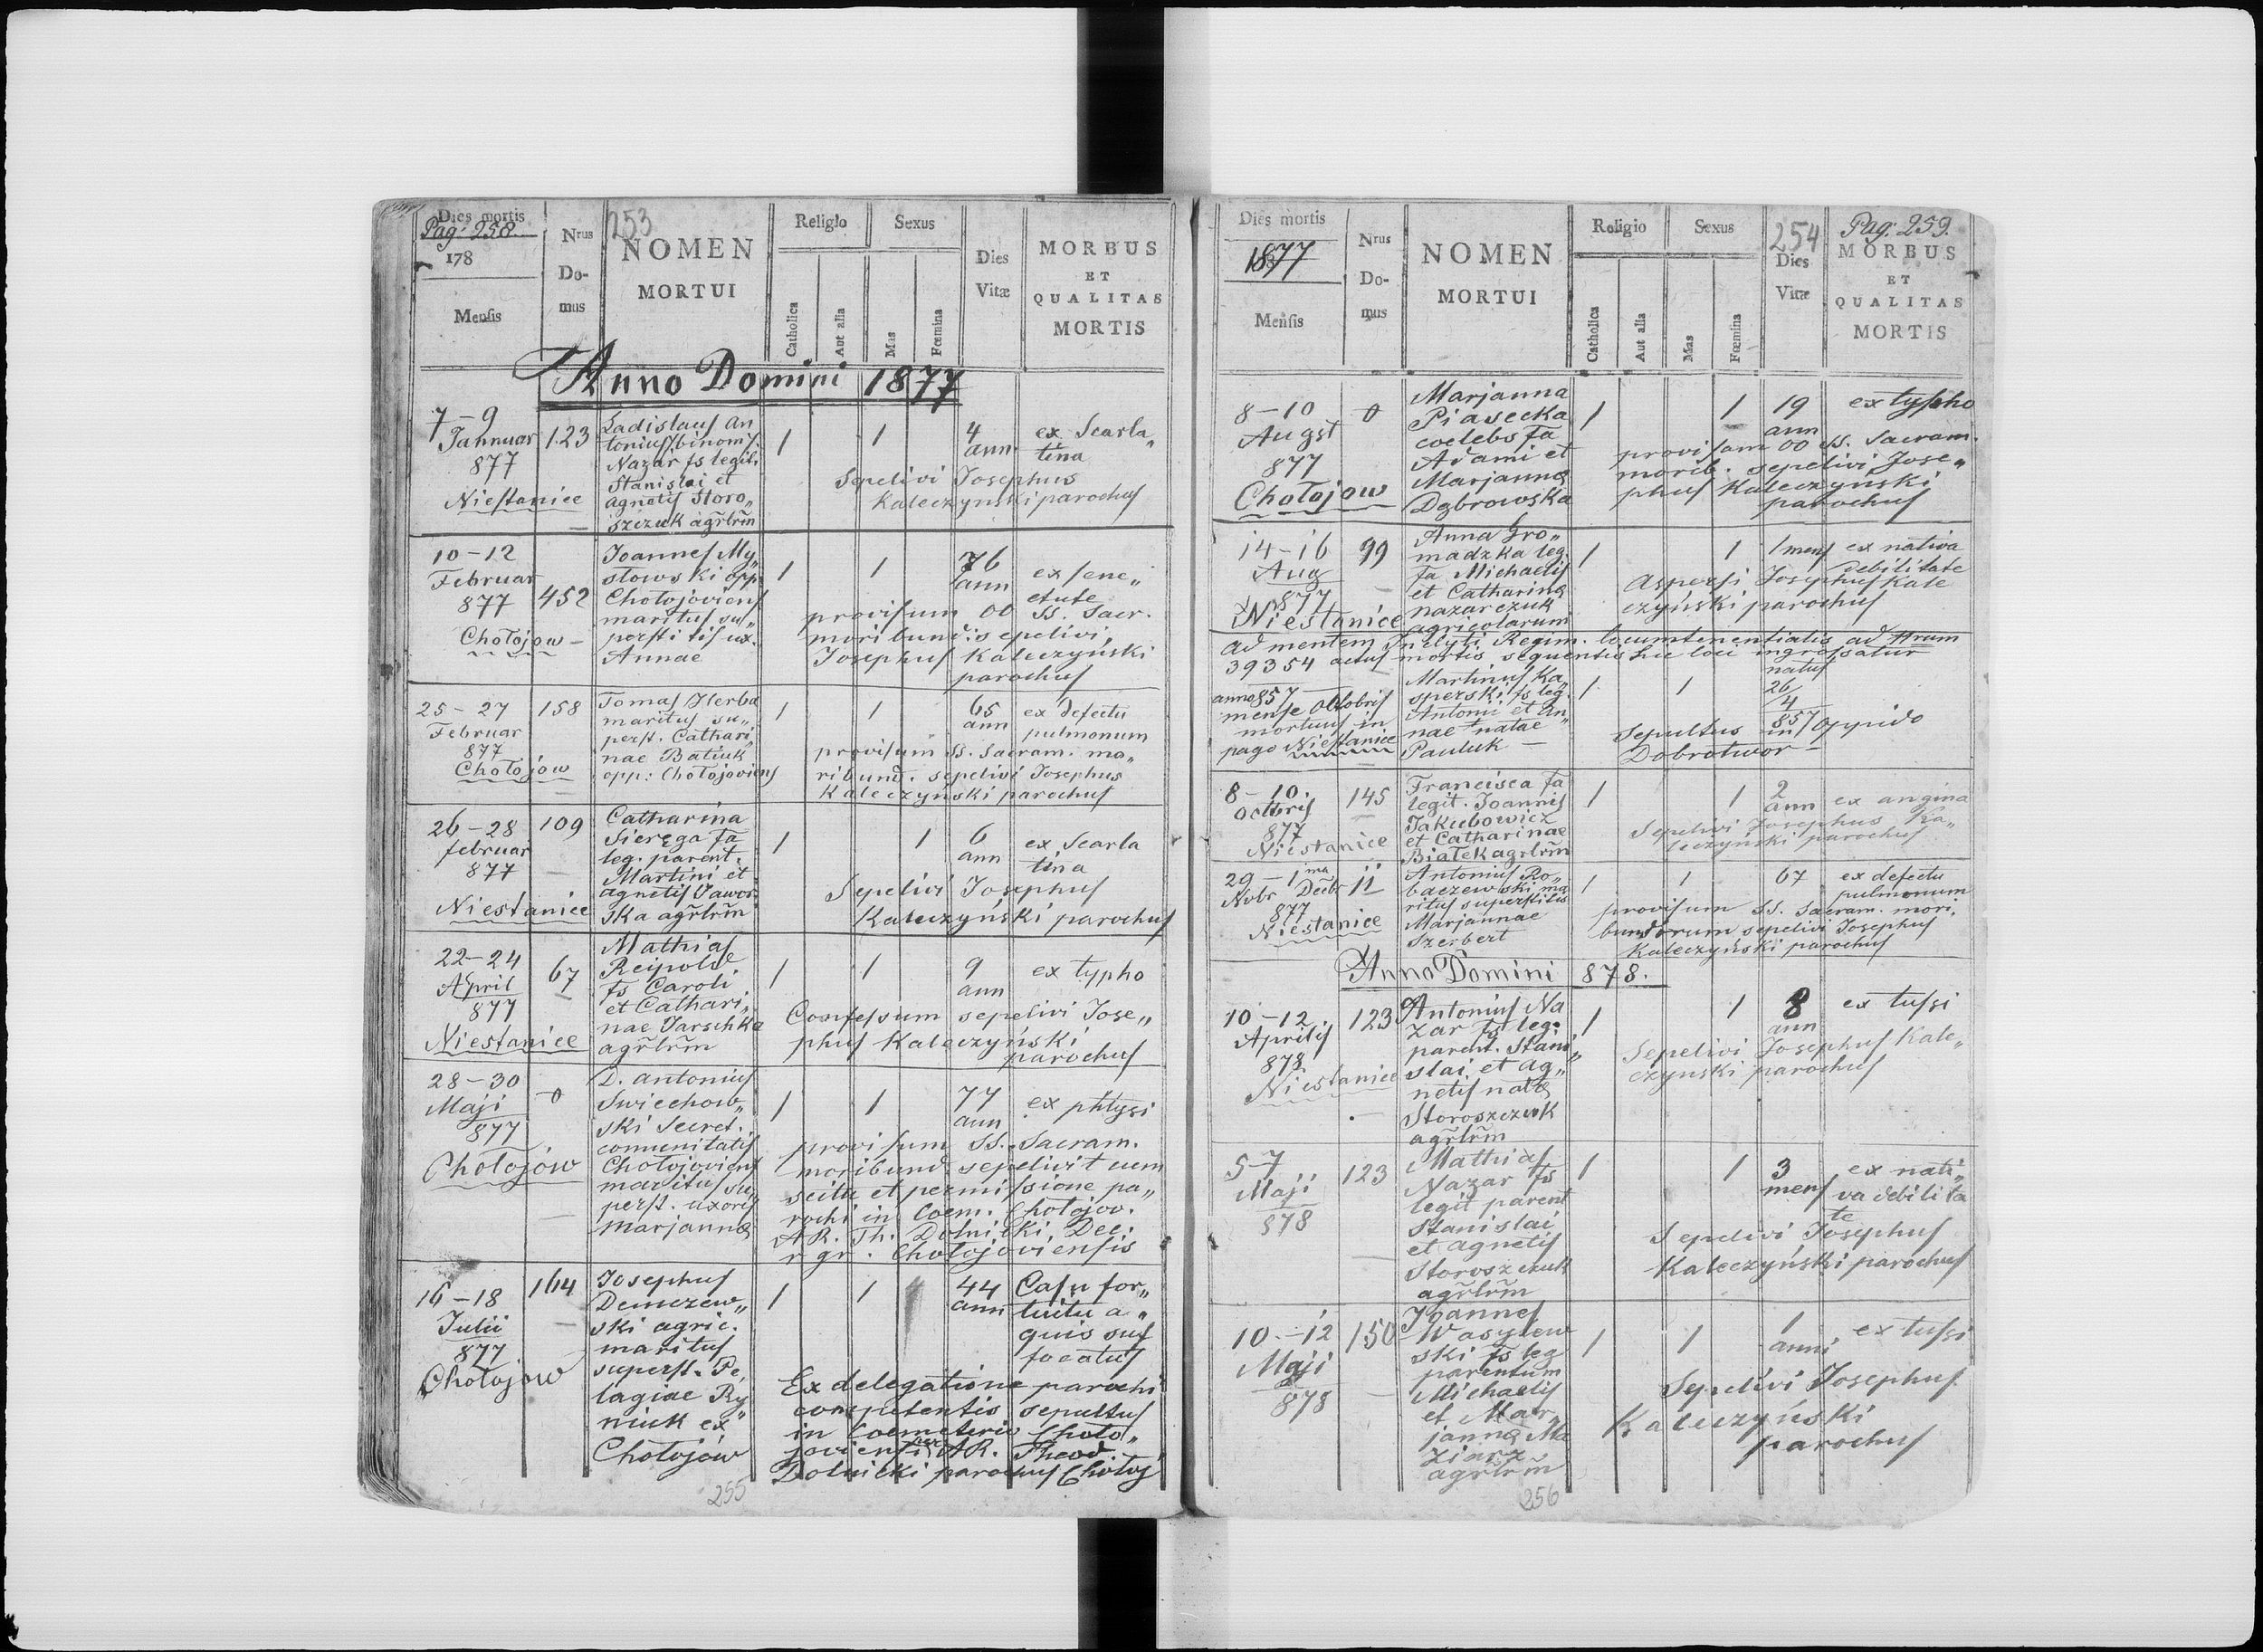 Dies mortis
Pag: 258.
178
Mensis
Nrus
Do-
mus
253
NOMEN
MORTUI
Religio
Catholica
Aut alia
Sexus
Mas
Fœmina
Dies
Vitæ
MORBUS
ET
QUALITAS
MORTIS
Anno Domini 1877
7-9
Jahnuar
877
Niestanice
123
Ladislaus An
tonius/binom/.
Nazar fs legit.
Stanislai et
Agnetis Storo„
szczuk agrlrm
1
1
4
ann
ex Scarla„
tina
Sepelivi Josephus
Kaleczynski parochus
10-12
Februar
877
Chołojow
452
Joannes My„
słowski opp.
Chołojoviens
maritus su„
perstitis ux.
Annae
1
1
76
ann
ex sene„
ctute
provisum OO SS. Sacr.
moribund: sepelivi
Josephus Kaleczyński
parochus
25-27
Februar
877
Chołojow
158
Tomas Herba
maritus su„
perst. Cathari„
nae Batiuk
opp: Chołojoviens
1
1
65
ann
ex defectu
pulmonum
provisum SS. Sacram. mo„
ribund. sepelivi Josephus
Kaleczyński parochus
26-28
februar
877
Niestanice
109
Catharina
Sierega fa
leg. parent.
Martini et
Agnetis Jawor„
ska agrlrm
1
1
6
ann
ex Scarla
tina
Sepelivi Josephus
Kaleczyński parochus
22-24
April
877
Niestanice
67
Mathias
Reipold
fs Caroli
et Cathari„
nae Jarschka
agrlrm
1
1
9
ann
ex typho
Confessum sepelivi Jose„
phus Kaleczyński
parochus
28-30
Maji
877
Chołojów
0
D. Antonius
Swiechow„
ski Secret.
comunitatis
Chołojoviens
maritus su„
perst. uxoris
Marjannae
1
1
77
ann
ex phtysi
provisum SS. Sacram.
moribund. sepelivit eum
scitu et permissione pa„
rochi in Coem. Chołojov.
A R. Th. Dolnicki, Dec.
r gr. Chołojoviensis
16-18
Julii
877
Chołojow
164
Josephus
Demczew„
ski agric.
maritus
superst. Pe„
lagiae Ry„
niuk ex
Chołojów
1
1
44
ann
Casu for„
tuitu a„
quis suf
focatus
Ex delegatione parochi
competentis sepultus
in Coemeterio Choło„
joviensi per AR. Theod.
Dolnicki parochus Chołoj
255
Dies mortis
1877
Mensis
Nrus
Do-
mus
NOMEN
MORTUI
Religio
Catholica
Aut alia
Sexus
Mas
Fœmina
254
Dies
Vitæ
Pag: 259.
MORBUS
ET
QUALITAS
MORTIS
8-10
Augst
877
Chołojow
0
Marjanna
Piasecka
coelebs fa
Adami et
Marjannae
Dąbrowska
1
1
19
ann
ex typho
provisam OO SS. Sacram.
morib. sepelivi Jose„
phus Kaleczyński
parochus
14-16
Aug
877
Niestanice
99
Anna Gro„
madzka leg.
fa Michaelis
et Catharinae
Nazarczuk
agricolarum
1
1
1 mens
ex nativa
debilitate
Aspersi Josephus Kale
czyński parochus
ad mentem Inclyti Regim. locumtenentialis ad Nrum
39354 actus mortis sequentis hic loci ingrossatur
anno 857
mense Octobris
mortuus in
pago Niestanice
Martinus Ka„
sperski fs leg.
Antonii et An„
nae natae
Pauluk
1
1
natus
26
4
857
Sepultus in oppido
Dobrotwor
8-10.
Octbris
877
Niestanice
145
Francisca fa
legit. Joannis
Jakubowicz
et Catharinae
Białek agrlrm
1
1
2
ann
ex angina
Sepelivi Josephus Ka„
leczyński parochus
29-1ma
Nvbr Decbr
877
Niestanice
11
Antonius Ro„
baczewski ma
ritus superstitis
Marjannae
Szerbert
1
1
67
ex defectu
pulmonum
provisum SS. Sacram. mori„
bundorum sepelivi Josephus
Kaleczyński parochus
Anno Domini 878.
10-12
Aprilis
878
Niestanice
123
Antonius Na
zar fs leg.
parent. Stani„
slai et Ag„
netis natae
Storoszczuk
agrlrm
1
1
8
ann
ex tussi
Sepelivi Josephus Kale„
czynski parochus
5-7
Maji
878
123
Mathias
Nazar fs
legit parent
Stanislai
et Agnetis
Storoszczuk
agrlrm
1
1
3
mens
ex nati„
va debilita
te
Sepelivi Josephus
Kaleczyński parochus
10.-12
Maji
878
150
Joannes
Wasylew
ski fs leg
parentum
Michaelis
et Mar„
jannae Ma
ziarz
agrlrm
1
1
1
anni
ex tussi
Sepelivi Josephus
Kaleczyński
parochus
256